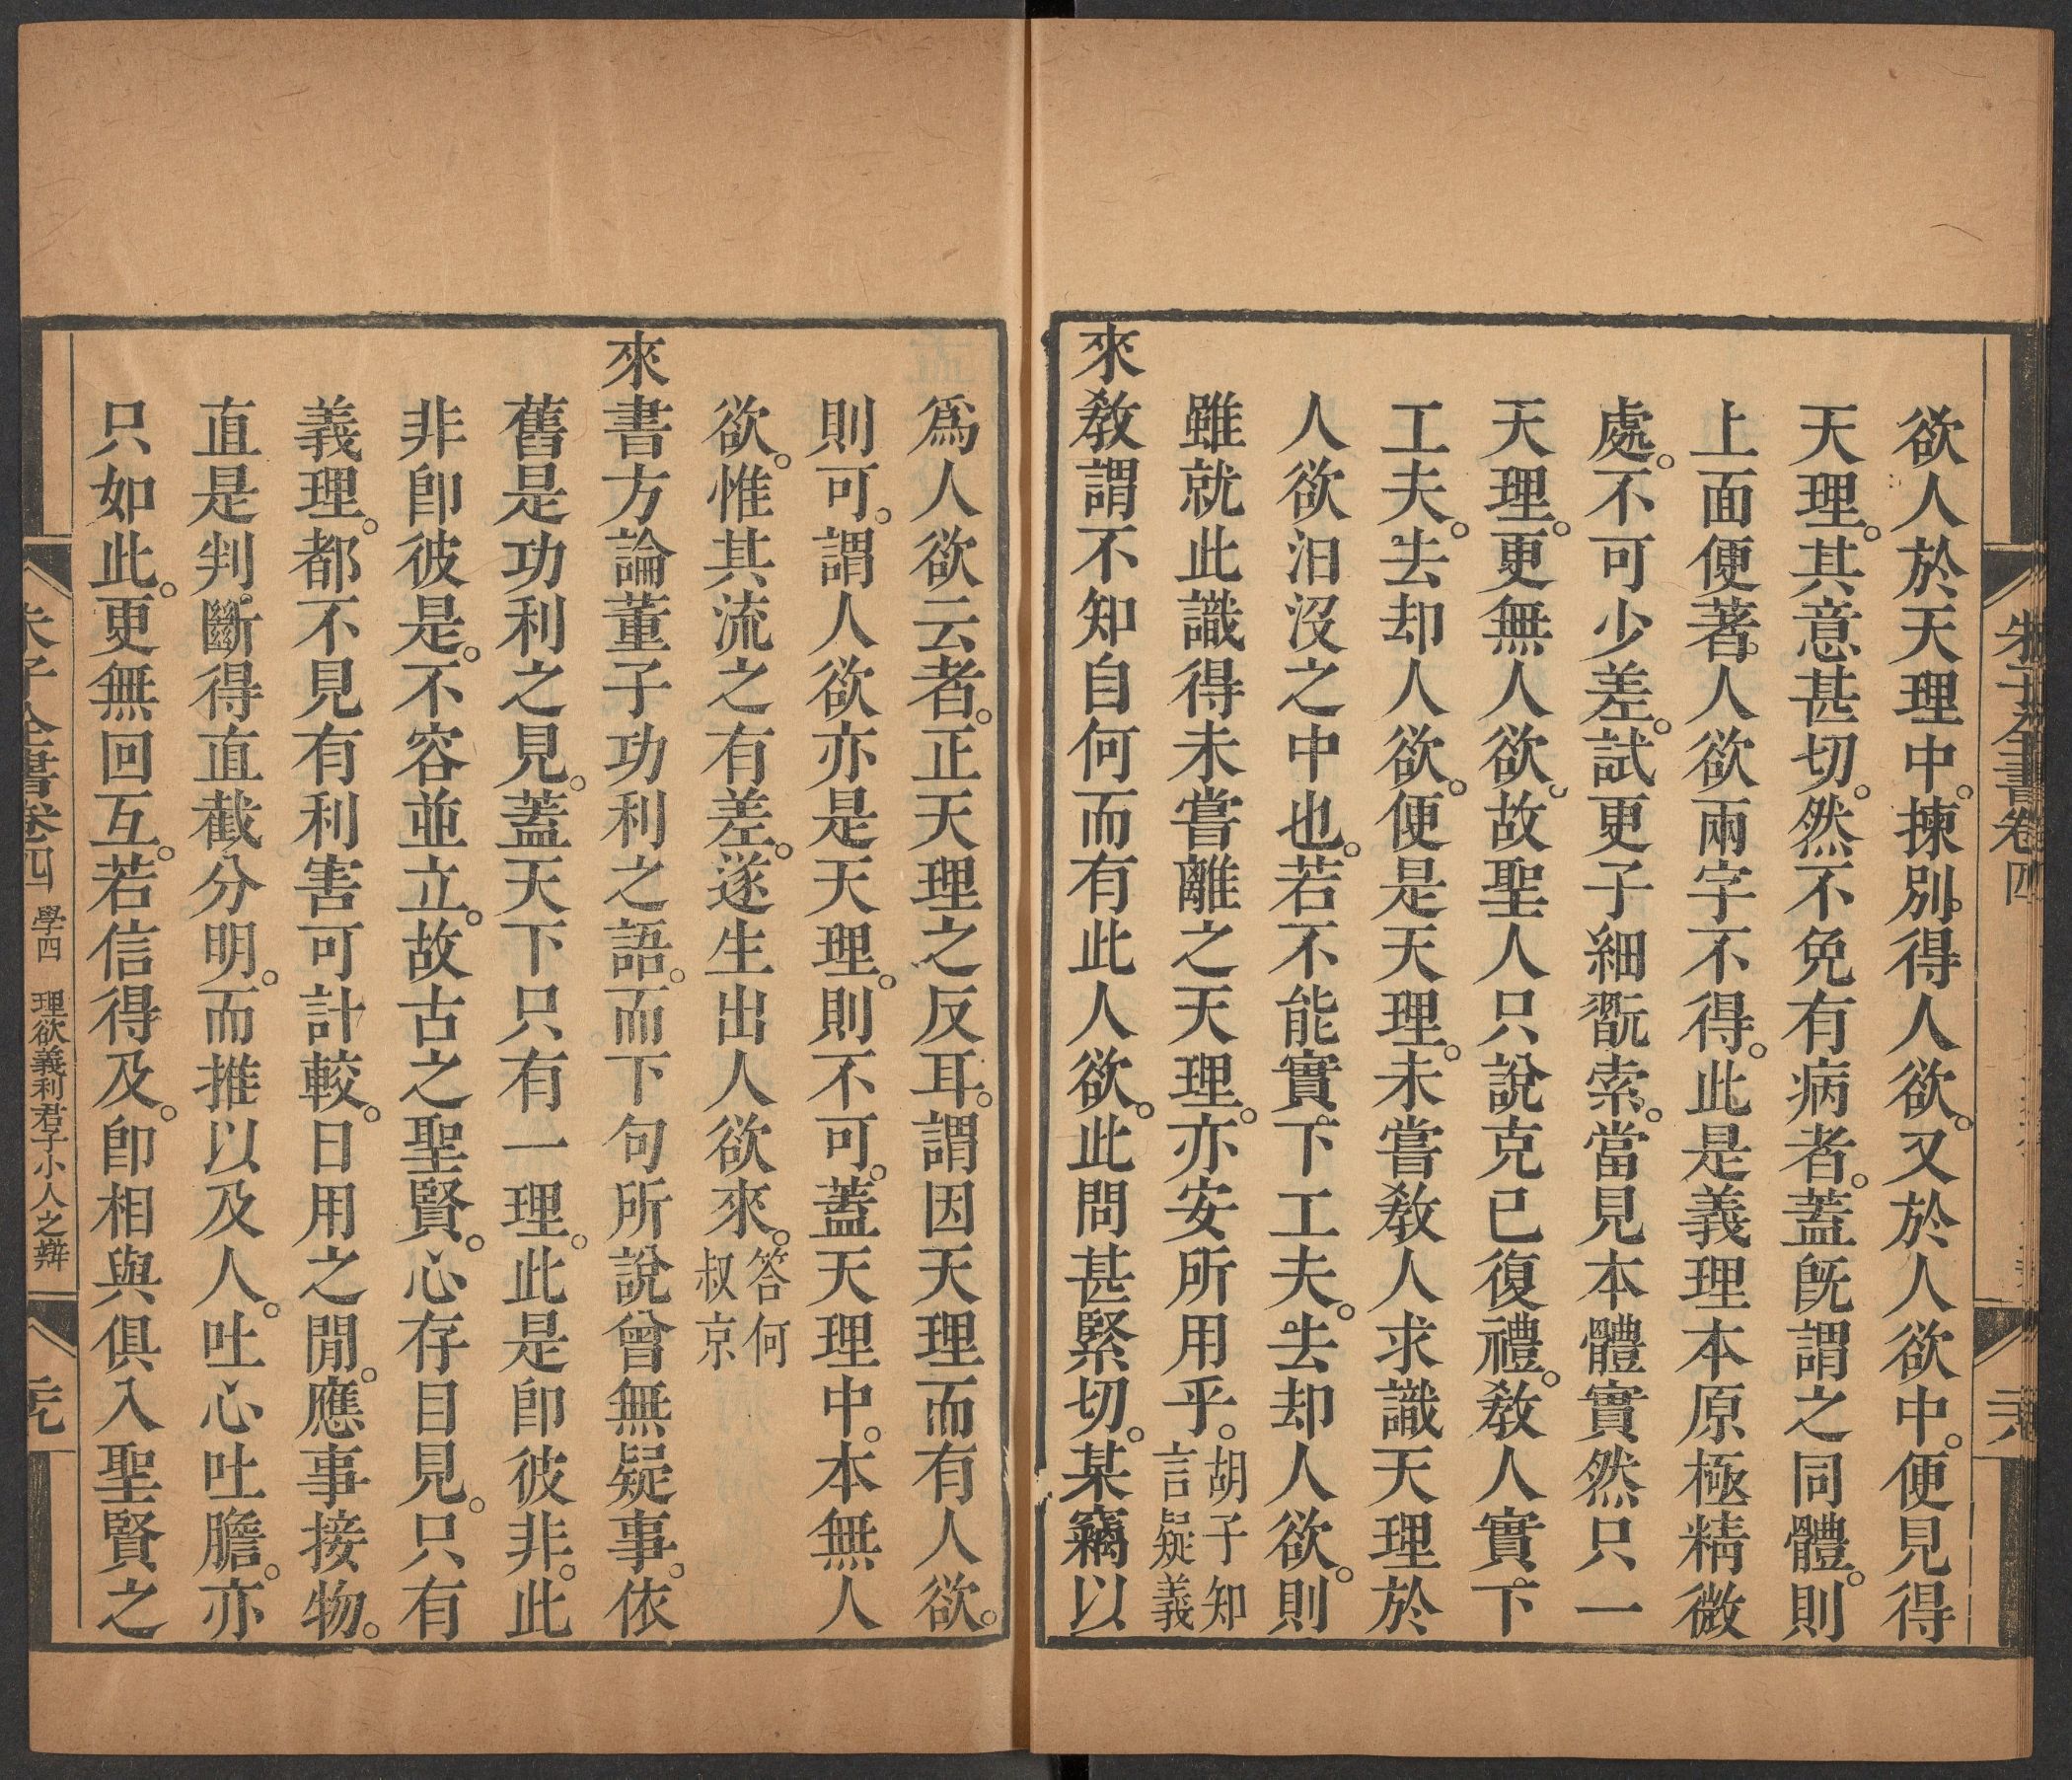 朱子全書卷四
欲人於天理中。揀別得人欲。又於人欲中。便見得
天理。其意甚切。然不免有病者。蓋旣謂之同體。則
上面便著人欲兩字不得。此是義理本原極精微
處。不可少差。試更子細翫索。當見本體實然只一
天理。更無人欲。故聖人只說克己復禮。敎人實下
工夫。去却人欲。便是天理。未嘗敎人求識天理於
人欲汩沒之中也。若不能實下工夫。去却人欲。則
雖就此識得未嘗離之天理。亦安所用乎。胡子知
言疑義
來敎謂不知自何而有此人欲。此問甚緊切。某竊以
爲人欲云者。正天理之反耳。謂因天理而有人欲。
則可。謂人欲亦是天理。則不可。蓋天理中。本無人
欲。惟其流之有差。遂生出人欲來。答何
叔京
來書方論董子功利之語。而下句所說曾無疑事。依
舊是功利之見。蓋天下只有一理。此是卽彼非。此
非卽彼是。不容並立。故古之聖賢。心存目見。只有
義理。都不見有利害可計較。日用之閒。應事接物。
直是判斷得直截分明。而推以及人。吐心吐膽。亦
只如此。更無回互。若信得及。卽相與俱入聖賢之
朱子全書卷四 學四 理欲義利君子小人之辯